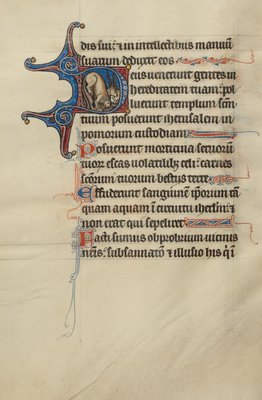 dis sui: ⁊ in intellectibus manuum
suarum deduxit eos
Deus uenerunt gentes in
hereditatem tuam: pol
luerunt templum sanc̄
tuum posuerunt iherusalem in
pomorum custodiam
Posuerunt morticina seruorum
tuorum escas volatilib; celi: carnes
sc̄orum tuorum bestijs terre
Effuderunt sanguinem ip̄orum tā
quam aquam ī circuitu iherl̄m: ⁊
non erat qui sepeliret
Facti sumus obprobrium uicinis
nr̄is: subsannatō ⁊ illusio his q̄ i